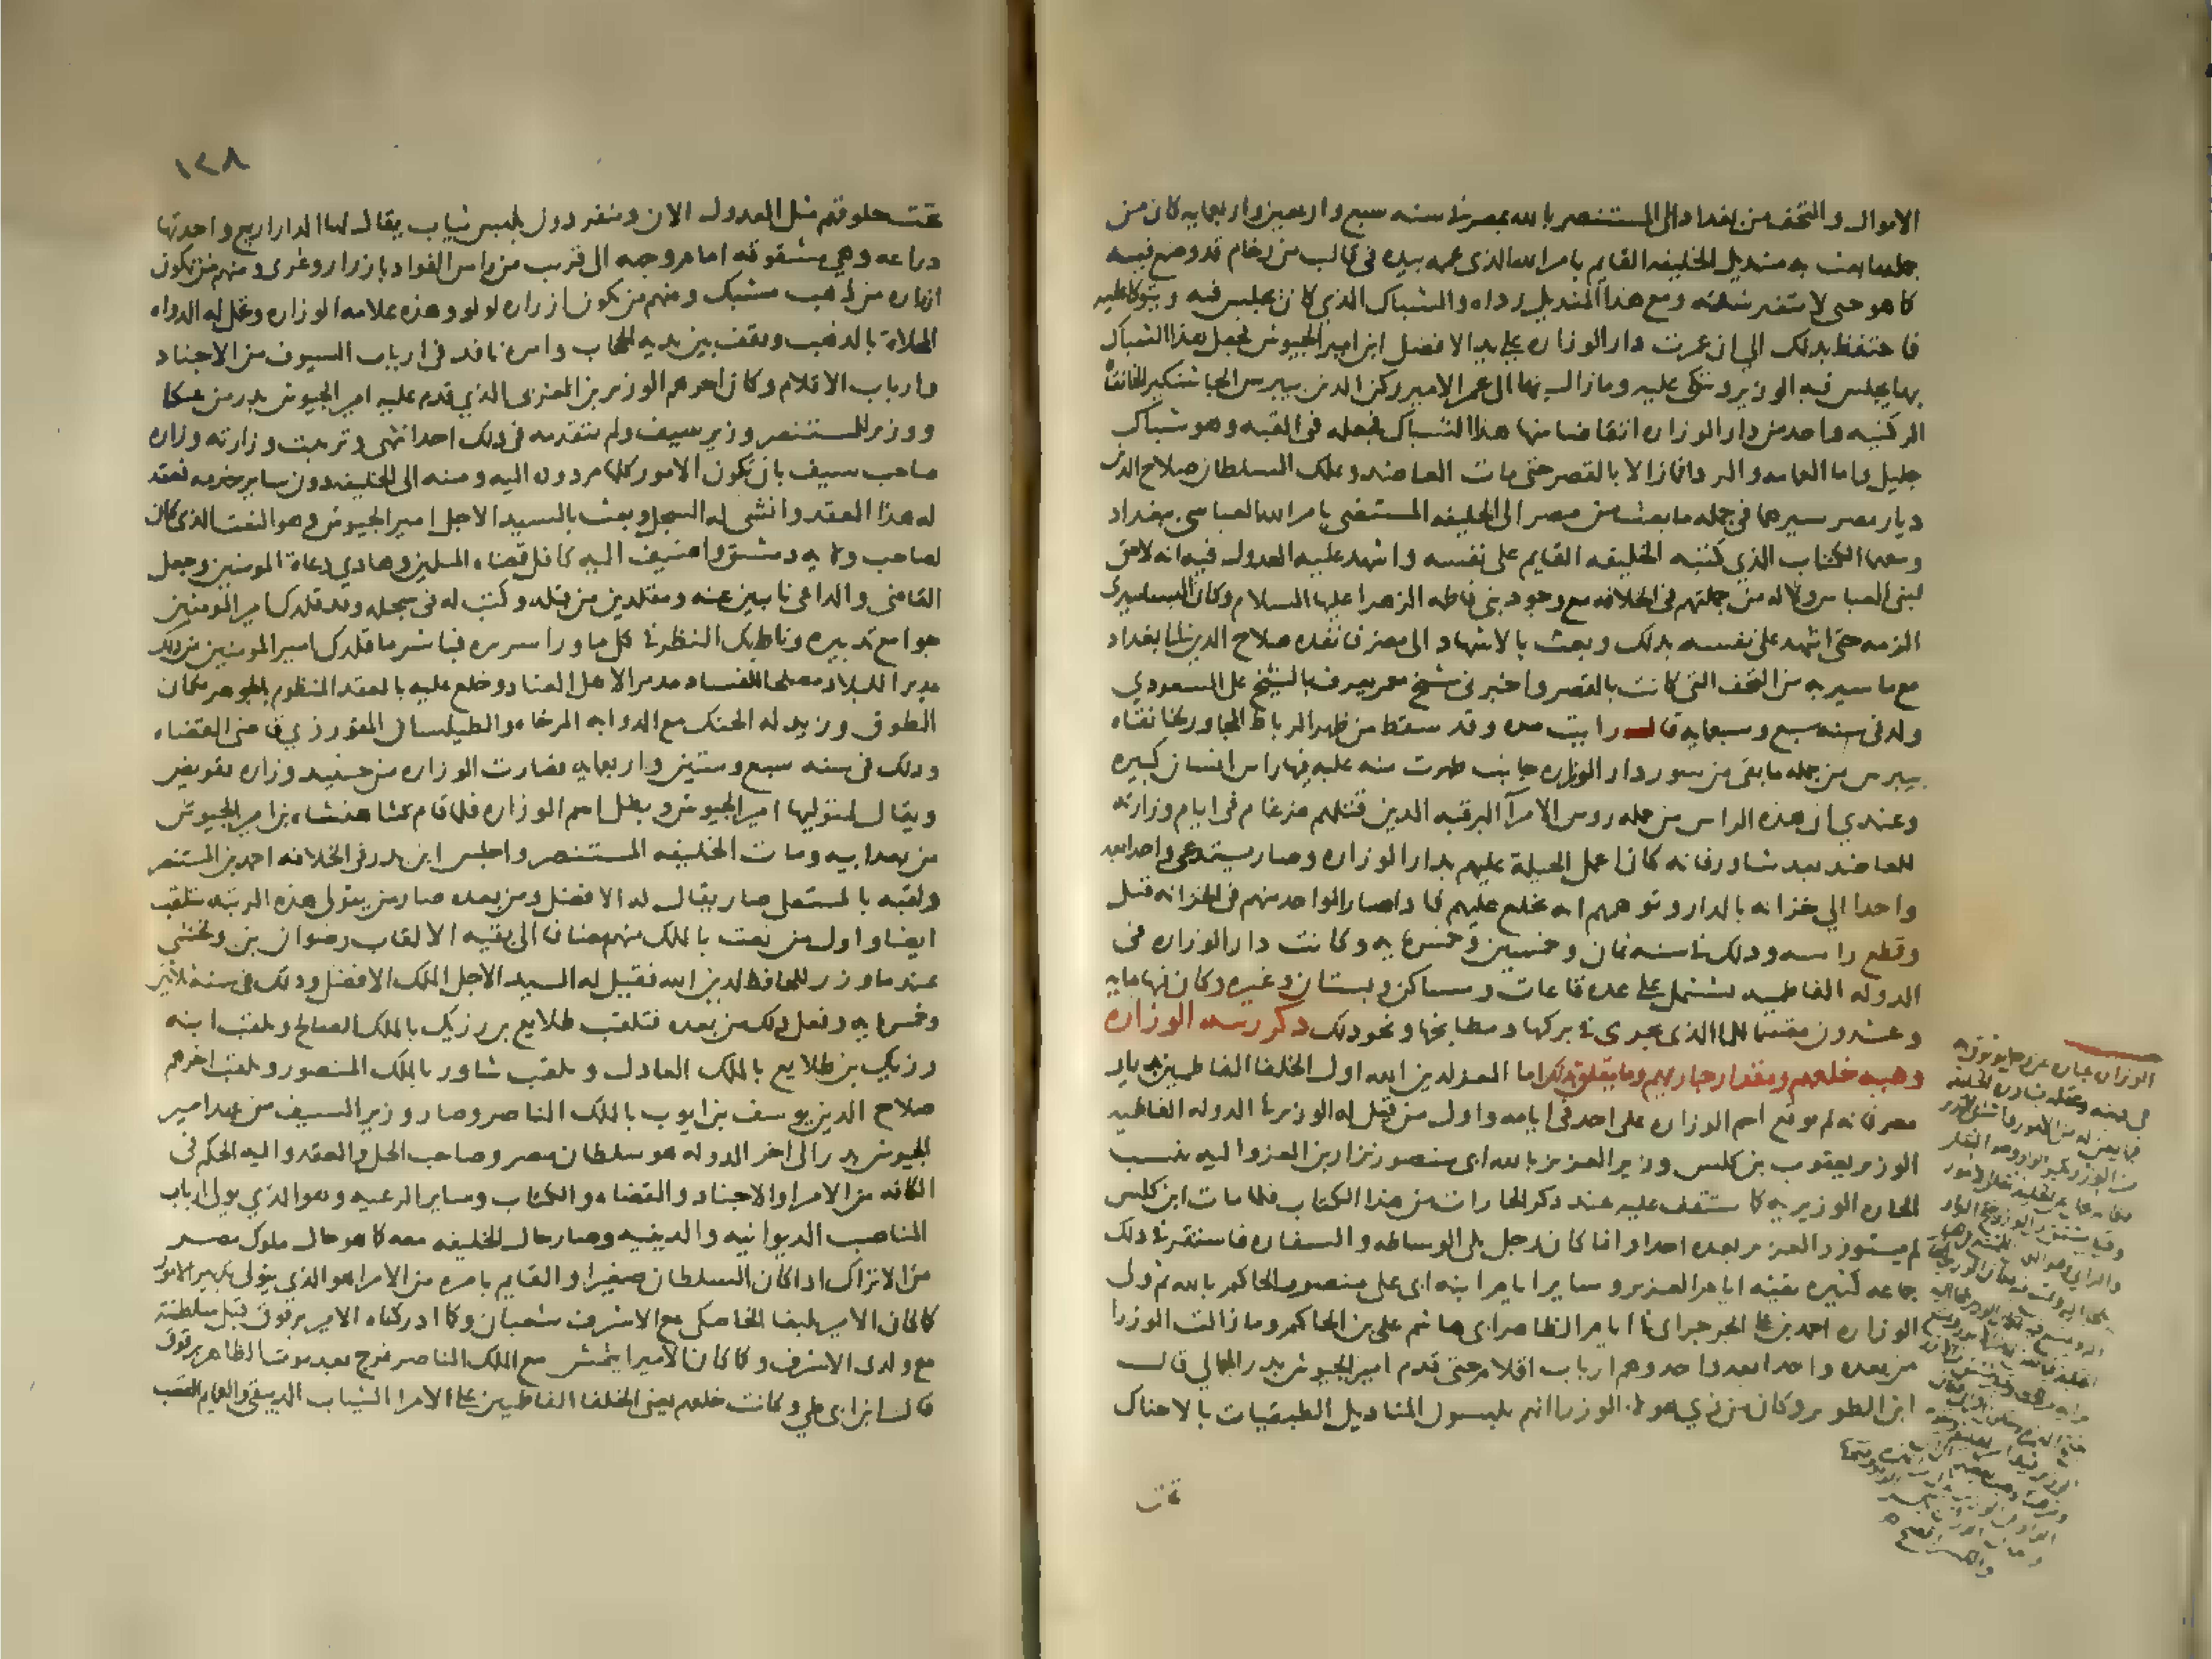 الاموال والتحف من بغداد الى المستنصر بالله بمصر في سنه سبع واربعين واربعمايه كان من
جملتها بعث به منديل الخليفه القايم بامر الله الذي عممه بيده في قالب من رخام قد وضع فيه
كما هو حتى لا تتغير شدته ومع هذا المنديل رداه والشباك الذي كان يجلس فيه ويتوكا عليه
فاحتفظ بذلك الى ان عمرت دار الوزاره على يد الافضل ابن امير الجيوش فجعل هذا الشباك
بها يجلس فيه الوزير ويتكى عليه وما زال بها الى عمر الامير ركن الدين بيبرس الجاشنكير الخانقاه
الركنيه واخد من دار الوزاره انقاضا منها هذا الشباك فجعله في القبه وهو شباك
جليل واما العمامه والردا فمازالا بالقصر حتى مات العاضد وملك السلطان صلاح الدين
ديار مصر سيرهما في جمله ما بعث من مصر الى الخليفه المستضي بامر الله العباسي ببغداد
ومعهما الكتاب الذي كتبه الخليفه القايم على نفسه واشهد عليه العدول فيه انه لا حق
لبني العباس ولا له من جملتهم في الخلافه مع وجود بني فاطمه الزهرا عليها السلام وكان البساسيري
الزمه حتى اشهد على نفسه بذلك وبعث بالاشهاد الى مصر فانفده صلاح الدين الى بغداد
مع ما سير به من التحف التي كانت بالقصر واخبرني شيخ معمر يعرف بالشيخ على المسعودي
ولد في سنه سبع وسبعمايه قال رايت مره وقد سقط من ظهر الرباط المجاور لخانقاه
بيبرس من جمله ما بقى من سور دار الوزاره جانب ظهرت منه علبه فيها راس انسان كبيره
وعندي ان هذه الراس من جمله روس الامرآ البرقيه الدين قتلهم ضرغام في ايام وزارته
للعاضد بعد شاور فانه كان اعمل الحيلة عليهم بدار الوزاره وصار يستدعي واحدا بعد
واحدا الى خزانه بالدار ويوهمهم انه يخلع عليهم فادا صار الواحد منهم في الخزانه قتل
وقطع راسه ودلك في سنه ثمان وخمسين وخمسمايه وكانت دار الوزاره في
الدوله الفاطميه تشتمل على عده قاعات ومساكن وبستان وغيره وكان فيها مايه
وعشرون مقسما للما الذي يجري في بركها ومطابخها ونحو ذلك ذكر رتبه الوزاره
وهيه خلعهم ومقدار جاريهم وما يتعلق بذلك اما المعز لدين الله اول الخلفا الفاطميين بديار
مصر فانه لم يوقع اسم الوزاره على احد في ايامه واول من قيل له الوزير في الدوله الفاطميه
الوزير يعقوب بن كلس وزير العزيز بالله ابي منصور نزار بن المعز واليه تنسب
الحاره الوزيريه كما ستقف عليه عند ذكر الحارات من هذا الكتاب فلما مات ابن كلس
لم يستوزر العزيز بعده احدا وانما كان رجل يلي الوساطه والسفاره فاستقر في ذلك
جماعه كثيره بقيه ايام العزيز وساير ايام ابنه ابي على منصور الحاكم بامر الله ثم ولى
الوزاره احمد بن على الجرجراي في ايام الظاهر ابي هاشم على بن الحاكم وما زالت الوزرا
من بعده واحدا بعد واحد وهم ارباب اقلام حتى قدم امير الجيوش بدر الجمالي قال
ابن الطوير وكان من زي هولا الوزرا انهم يلبسون المناديل الطبقيات بالاحناك
تحت
١٢٨
تحت حلوقهم مثل العدول الان وينفردون بلبس ثياب يقال لها الدراريع واحدتها
دراعه وهي مشقوقه امام وجهه الى قريب من راس الفواد بازرار وعرى ومنهم من تكون
ازراره من ذهب مشبك ومنهم من تكون ازراره لولو وهذه علامه الوزاره وتحمل له الدواه
المحلاة بالذهب ويقف بين يديه الحجاب وامره نافد في ارباب السيوف من الاجناد
وارباب الاقلام وكان اخرهم الوزير بن المغربي الذي قدم عليه امير الجيوش بدر من عكا
ووزير للمستنصر وزير سيف ولم يتقدمه في ذلك احد انتهى وترتبت وزارته وزاره
صاحب سيف بان تكون الامور كلها مردوده اليه ومنه الى الخليفه دون ساير خدمه فعقد
له هذا العقد وانشى له السجل وبعث بالسيد الاجل امير الجيوش وهو النعت الذي كان
لصاحب ولايه دمشق واضيف اليه كافل قضاه المسلمين وهادي دعاة المومنين وجعل
القاضي والداعي نايبين عنه ومقلدين من قبله وكتب له في سجله وقد قلدك امير المومنين
جوامع تدبيره وناط بك النظر في كل ما ورا سريره فباشر ما قلدك امير المومنين من ذلك
مدبرا للبلاد مصلحا للفساد مدمرا لاهل العناد وخلع عليه بالعقد المنظوم بالجوهر مكان
الطوق وزيد له الحنك مع الدوابه المرخاه والطيلسان المقور زي قاضي القضاه
ودلك في سنه سبع وستين واربعمايه فصارت الوزاره من حينيد وزاره تفويض
ويقال لمتوليها امير الجيوش وبطل اسم الوزاره فلما قام شاهنشاه بن امير الجيوش
من بعد ابيه ومات الخليفه المستنصر واجلس ابن بدر في الخلافه احمد بن المستنصر
ولقبه بالمستعلى صار يقال له الافضل ومن بعده صار من يتولى هذه الرتبه يتلقب
ايضا واول من نعت بالملك منهم مضافا الى بقيه الالقاب رضوان بن ولخشي
عند ما وزر للحافظ لدين الله فقيل له السيد الاجل الملك الافضل ودلك في سنه ثلاثين
وخمسمايه وفعل ذلك من بعده فتلقب طلايع بن رزيك بالملك الصالح وتلقب ابنه
رزيك بن طلايع بالملك العادل وتلقب شاور بالملك المنصور وتلقب اخرهم
صلاح الدين يوسف بن ايوب بالملك الناصر وصار وزير السيف من عهد امير
الجيوش بدر الى اخر الدوله هو سلطان مصر وصاحب الحل والعقد واليه الحكم في
الكافه من الامرا والاجناد والقضاه والكتاب وساير الرعيه وهو الذي يولي ارباب
المناصب الديوانيه والدينيه وصار حال الخليفه معه كما هو حال ملوك مصر
من الاتراك ادا كان السلطان صغيرا والقايم بامره من الامرا هو الذي يتولى تدبير الامور
كما كان الامير يلبغا الخاصكي مع الاشرف شعبان وكما ادركناه الامير برقوق قبل سلطنته
مع ولدي الاشرف وكما كان الامير ايتمش مع الملك الناصر فرج بعد موت الظاهر برقوق
قال ابن ابي طي وكانت خلعهم يعني الخلفا الفاطميين على الامرا الثياب الدبيقي والعمايم القصب